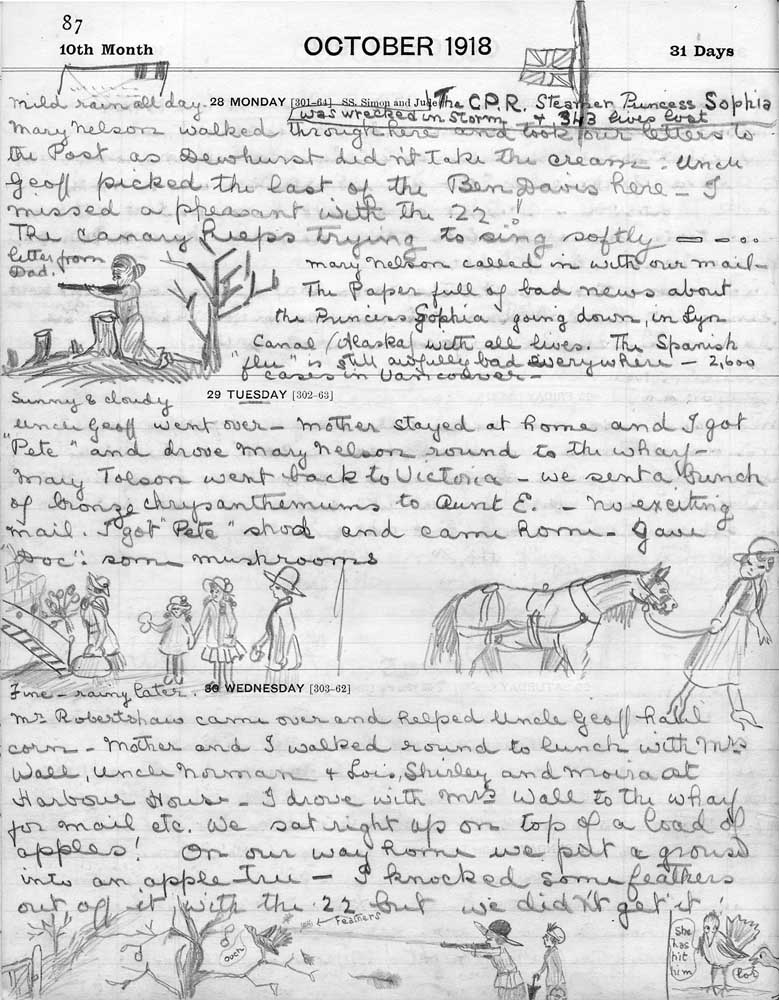 87
10th Month OCTOBER 1918 31 Days
mild rain all day. 28 MONDAY [301-64] SS. Simon and Jude The C.P.R. Steamer Princess Sophia
was wrecked in storm & 343 lives lost
Mary Nelson walked through here and took our letters to
the Post as Dewhurst did'nt take the cream. Uncle
Geoff picked the last of the Ben Davis here – I
missed a pheasant with the 22!
The canary keeps trying to sing softly
letter from
Dad.
Mary Nelson called in with our mail –
The Paper full of bad news about
the Princess Sophia going down in Lyn
Canal (Alaska) with all lives. The Spanish
"flu" is still awfully bad everywhere – 2,600
cases in Vancouver –
Sunny & cloudy 29 TUESDAY [302-63]
Uncle Geoff went over – Mother stayed at home and I got
"Pete" and drove Mary Nelson round to the wharf –
Mary Tolson went back to Victoria – we sent a bunch
of bronze chrysanthemums to Aunt E. – no exciting
mail. I got "Pete" shod and came home – Gave
"Doc": some mushrooms
Fine – rainy later. 30 WEDNESDAY [303-62]
Mr Robertshaw came over and helped Uncle Geoff haul
corn – Mother and I walked round to lunch with Mrs
Wall, Uncle Norman & Lois, Shirley and Moira at
Harbour House – I drove with Mrs Wall to the wharf
for mail etc. We sat right up on top of a load of
apples! On our way home we put a grouse
into an apple tree – I knocked some feathers
out of it with the 22 but we did'nt get it!
Feathers
ouch
She
has
hit
him